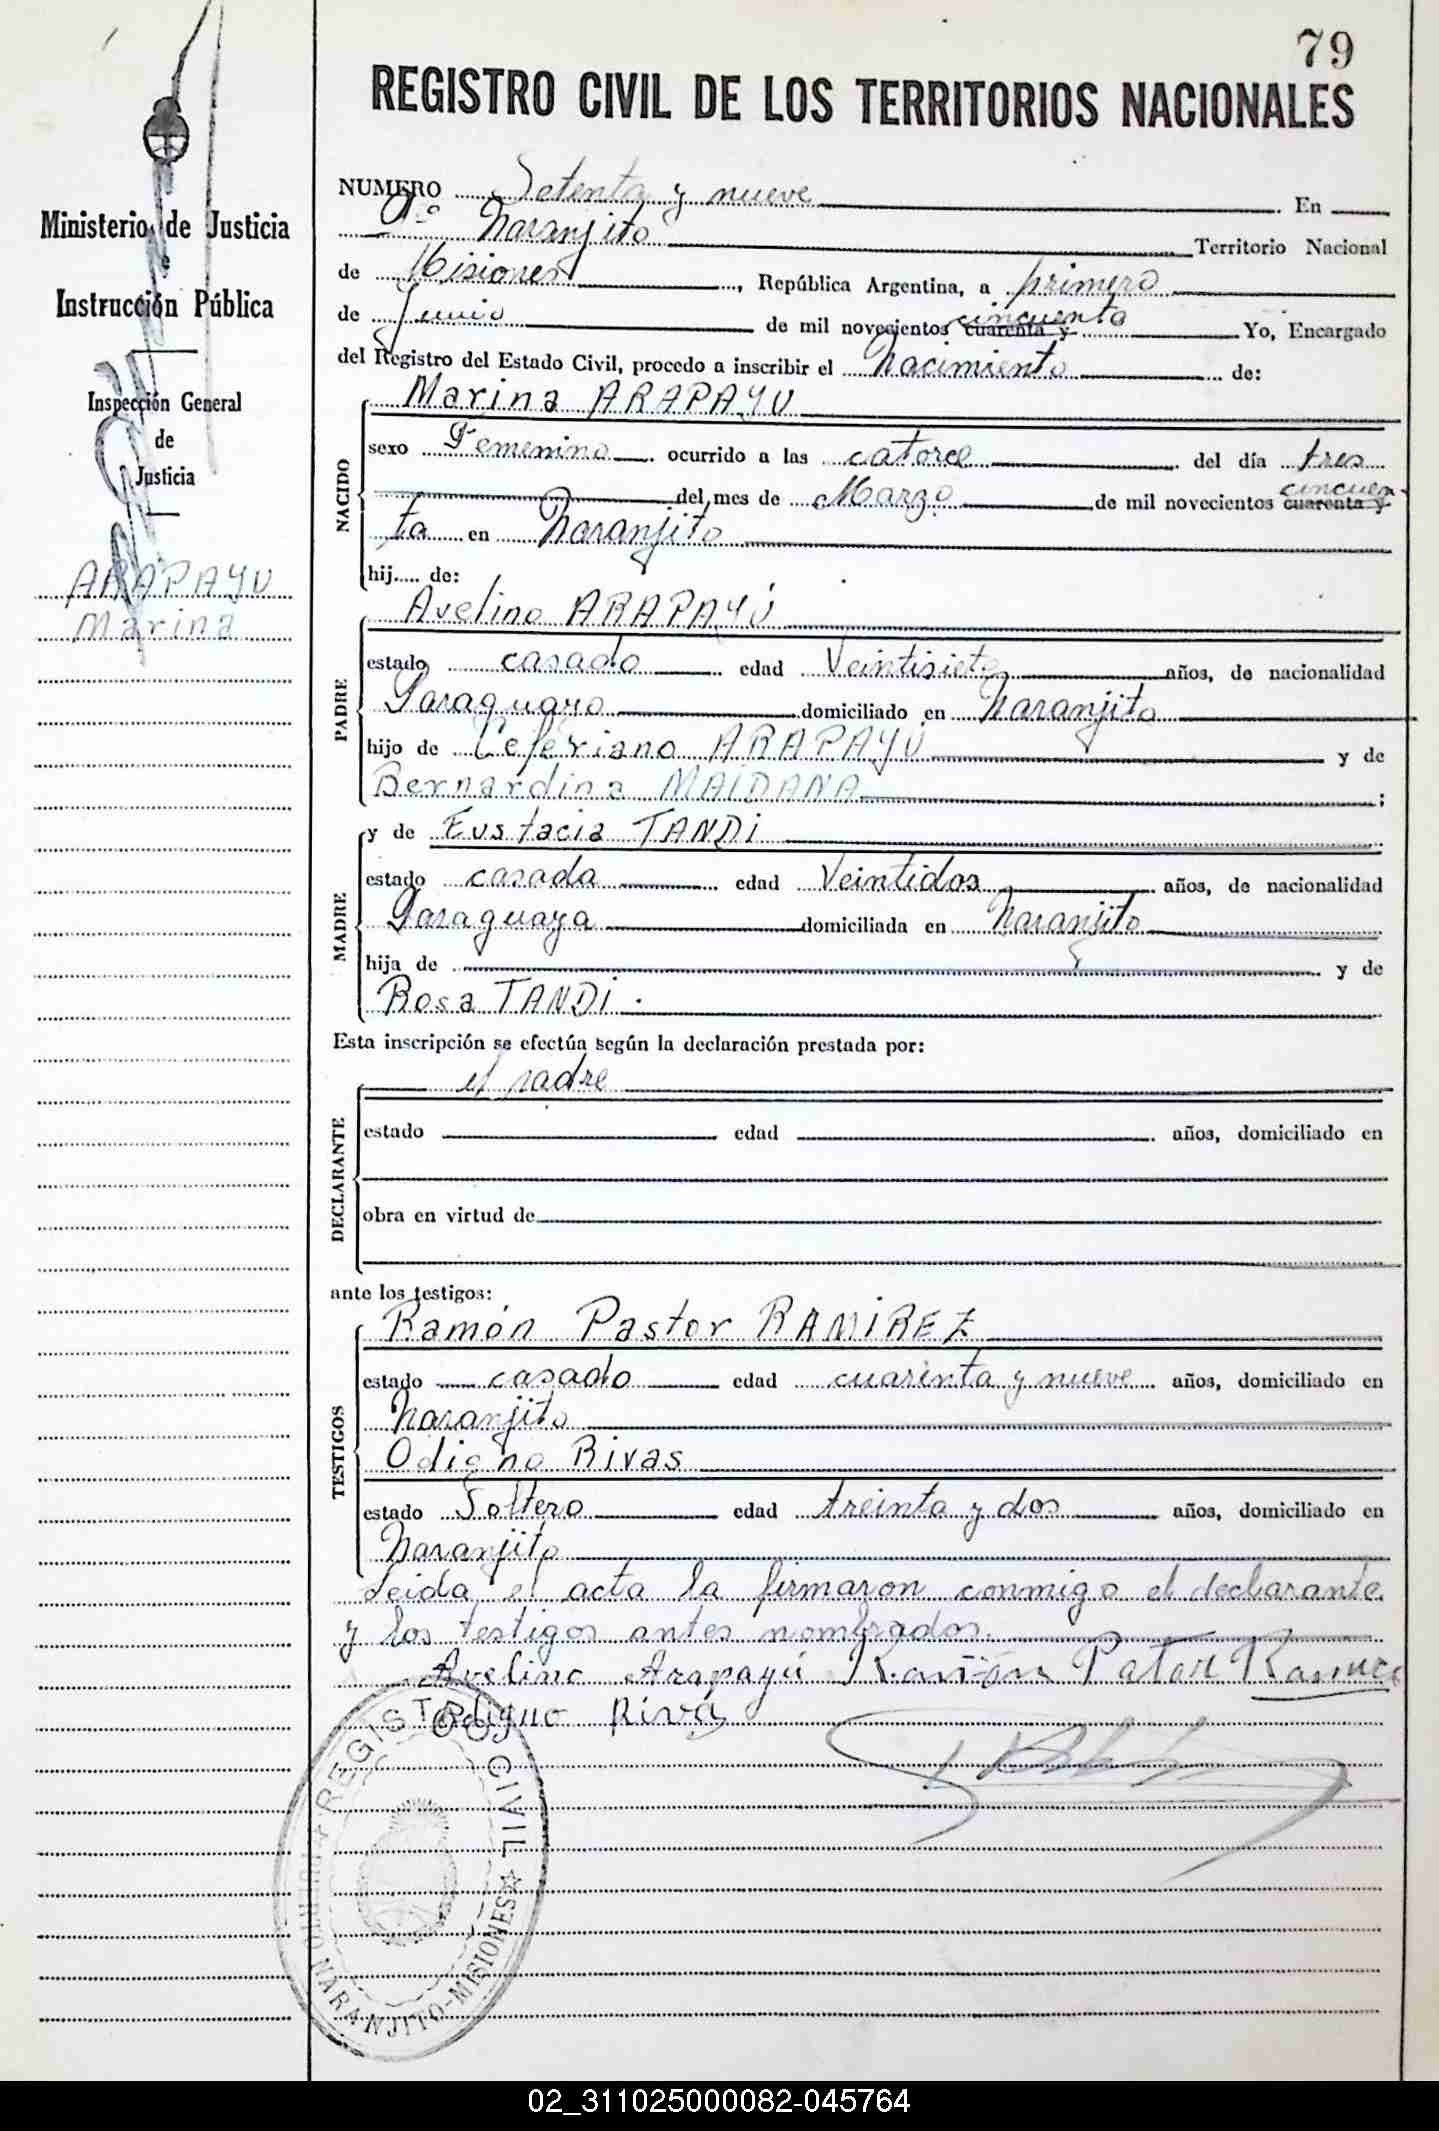 79
REGISTRO CIVIL DE LOS TERRITORIOS NACIONALES
Ministerio de Justicia
e
Instrucción Pública
Inspección General
de
Justicia
ARAPAYU
Marina
NUMERO Setenta y nueve En
Pto Naranjito Territorio Nacional
de Misiones, República Argentina, a primero
de Junio de mil novecientos cuarenta y cincuenta Yo, Encargado
del Registro del Estado Civil, procedo a inscribir el Nacimiento de:
NACIDO
Marina ARAPAYU
sexo Femenino ocurrido a las catorce del día tres
del mes de Marzo de mil novecientos cuarenta y cincuen-
ta en Naranjito
hij de:
PADRE
Avelino ARAPAYÚ
estado casado edad Veintisiete años, de nacionalidad
Paraguayo domiciliado en Naranjito
hijo de Ceferiano ARAPAYÚ y de
Bernardina MAIDANA;
MADRE
y de Eustacia TANDI
estado casada edad Veintidos años, de nacionalidad
Paraguaya domiciliada en Naranjito
hija de y de
Rosa TANDI.
Esta inscripción se efectúa según la declaración prestada por:
DECLARANTE
el padre
estado edad años, domiciliado en
obra en virtud de
ante los testigos:
TESTIGOS
Ramón Pastor RAMIREZ
estado casado edad cuarenta y nueve años, domiciliado en
Naranjito
Odigno Rivas
estado Soltero edad treinta y dos años, domiciliado en
Naranjito
Leida el acta la firmaron conmigo el declarante
y los testigos antes nombrados.
Avelino Arapayú Ramón Pator Ramirez
Odigno Rivas
REGISTRO CIVIL
PUERTO NARANJITO-MISIONES
02_311025000082-045764